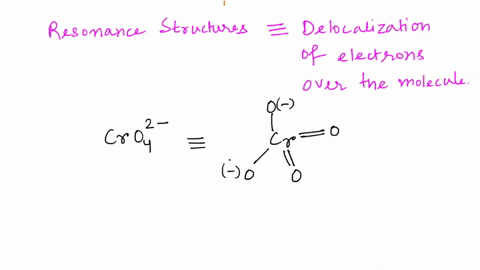 Resonance Structures ≡ Delocalization
of electrons
over the molecule.
CrO₄²⁻ ≡
O(-)
Cr
O
(-)O
O